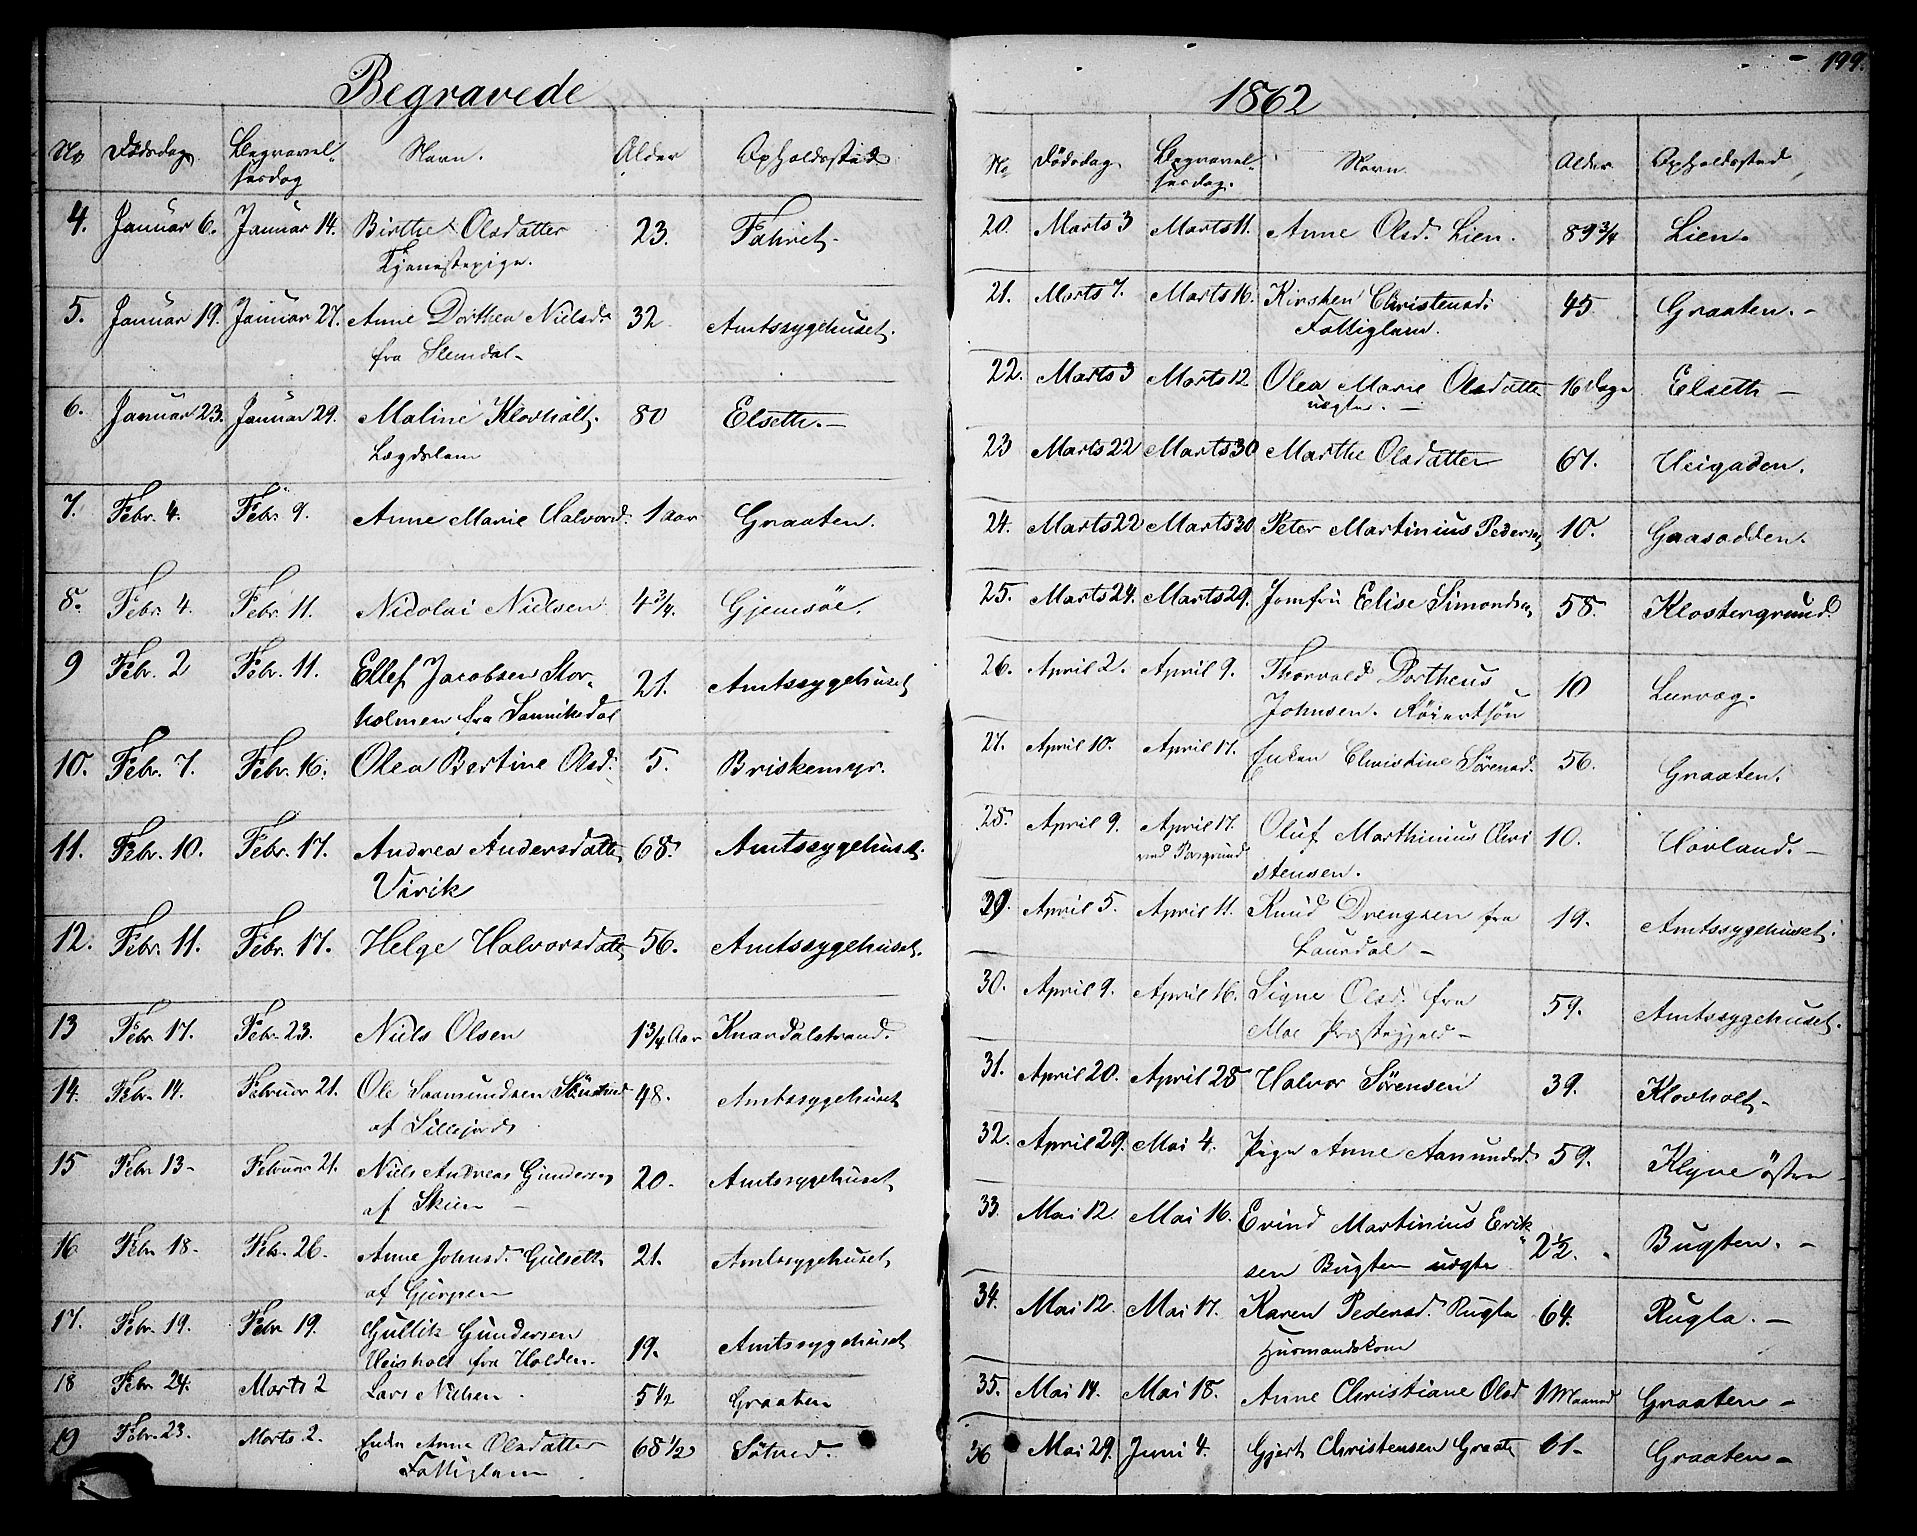 Begravede
No Dødsdag. Begravel-
sesdag Navn. Alder Opholdssted
4. Januar 6. Januar 14. Birthe Olsdatter 23. Fahret.
Tjenestepige.
5. Januar 19. Januar 27. Anne Dorthea Nielsd. 32. Amtssygehuset.
fra Slemdal-
6. Januar 23. Januar 29. Maline Klovholt. 80 Elseth.-
Lægdslem
7. Febr. 4. Febr. 9. Anne Marie Halvord. 1 aar Graaten.
8. Febr. 4. Febr. 11. Nicolai Nielsen 4 3/4. Gjemsöe.
9 Febr. 2 Febr. 11. Ellef Jacobsen Stor-
21. Amtssygehuset
holmen fra Sannikedal
10. Febr. 7. Febr. 16. Olea Bertine Olsd. 5. Briskemyr.
11. Febr. 10. Febr. 17. Andrea Andersdatter 68. Amtssygehuset.
Virik
12. Febr. 11. Febr. 17. Helge Halvorsdatter 56. Amtssygehuset.
13 Febr 17. Febr. 23. Niels Olsen 1 3/4 Aar Knardalstrand.
14. Febr. 14. Februar 21. Ole Saamundsen 48. Amtssygehuset
af Sillejord
15 Febr 13- Februar 21. Niels Andreas Gundersen 20. Amtssygehuset
af Skien -
16 Febr 18- Febr. 26. Anne Johnsd. Gulseth 21. Amtssygehuset
af Gjerpen
17. Febr. 19. Febr 19. Gullik Gundersen
19. Amtssygehuset
Heisholt fra Holden.
18 Febr 24. Marts 2 Lars Nielsen 5 1/2 Graaten
19 Febr. 23. Marts 2. Enken Anne Olsdatter 68 1/2 Sötved.
Fattiglem
199.
1862
No Dödsdag. Begravel-
sesdag. Navn. Alder Opholdssted
20. Marts 3 Marts 11. Anne Olsd. Lien. 89 3/4 Lien.
21. Marts 7. Marts 16. Kirsten Christensd. 45 Graaten.-
Fattiglem.
22. Marts 3 Marts 12 Olea Marie Olsdatter 16 Dage Elseth-
uægte. -
23 Marts 22 Marts 30 Marthe Olsdatter 67. Heigaden.
24. Marts 22 Marts 30. Peter Martinius Pedersen 10. Gaasodden.
25. Marts 24. Marts 29. Jomfru Elise Simondsen 58. Klostergrund.
26. April 2. April 9. Thorvald Dortheus
10 Lurvæg.
Johnsen.
27. April 10. April 17. Enken Christine Sörensd. 56. Graaten.
28. April 9. April 17. Oluf Marthinius Chri 10. Hovland.-
ved Porsgrund stensen.
29. April 5. April 11. Knud Drengsen fra 19. Amtssygehuset.
Laurdal -
30. April 9. April 16. Signe Olsd. fra 59. Amtssygehuset.
Moe Præstegjeld-
31. April 20. April 28 Halvor Sörensen 39. Klovholt-
32. April 29. Mai 4. Pige Anne Aamundsd. 59. Klyve östre
33. Mai 12. Mai 16. Evind Martinius Erik
2 1/2. Bugten.-
sen Bugten uægte
34. Mai 12. Mai 17. Karen Pedersd. Rugla 64. Rugla.-
Husmandskone
35. Mai 14. Mai 18. Anne Christiane Olsd 1 Maaned Graaten-
36 Mai 29. Juni 4. Gjert Christensen Graaten 61- Graaten-